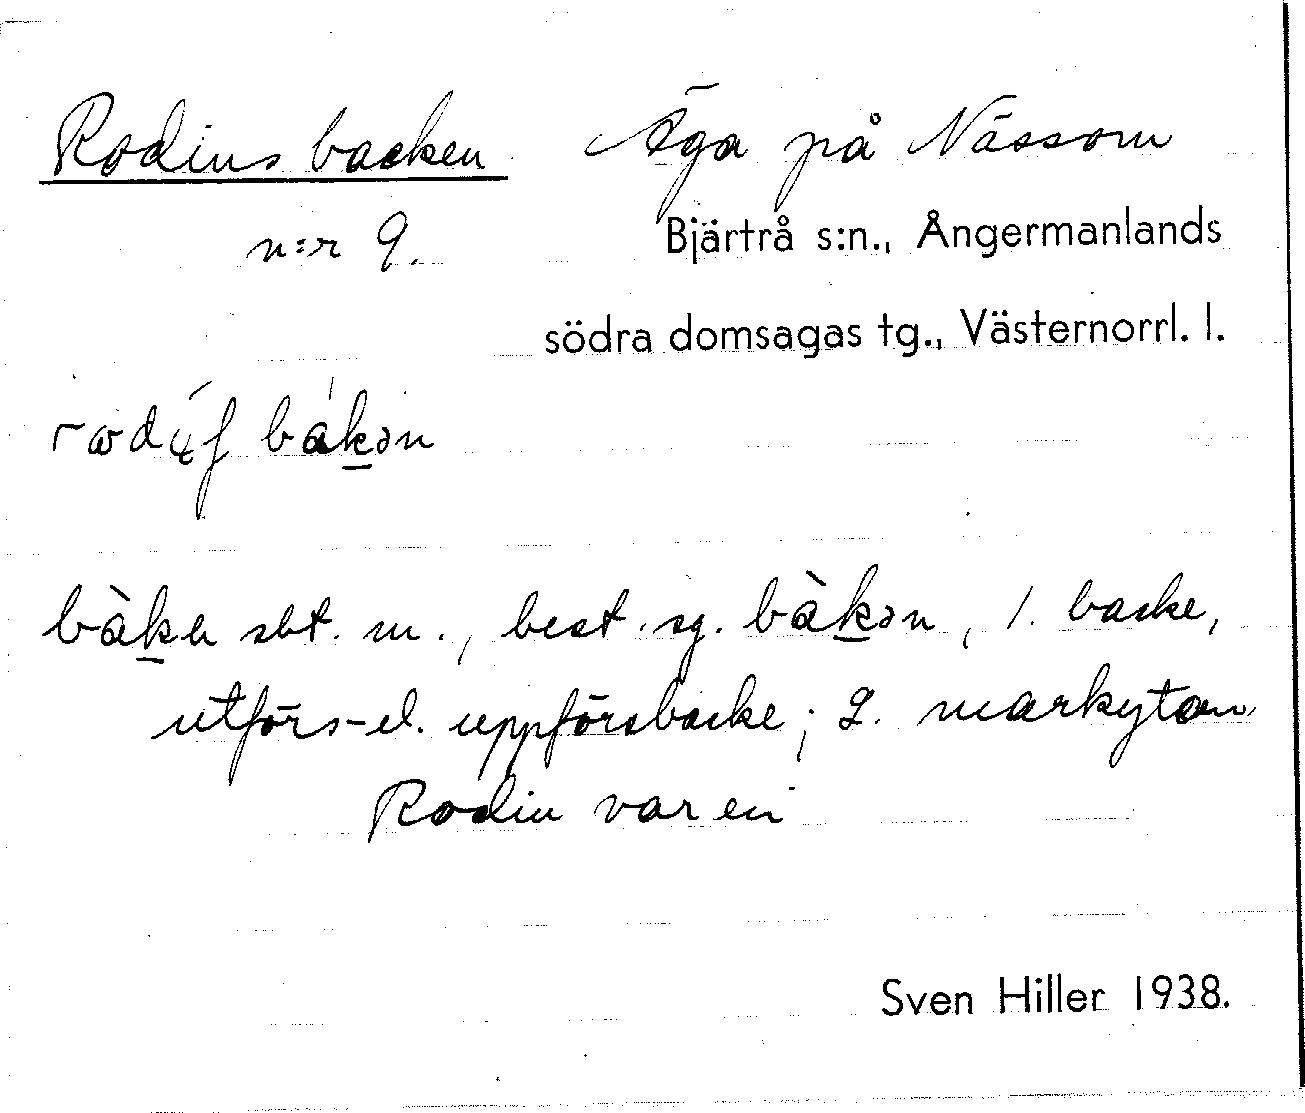 Rodins backen Äga på Nässom
n:r 9. Bjärtrå s:n., Ångermanlands
södra domsagas tg., Västernorrl. l.
bàkən
sbt. m., best. sg. bàkən, 1. backe,
utförs- el. uppförsbacke; 2. markytan.
Rodin var en
Sven Hiller 1938.